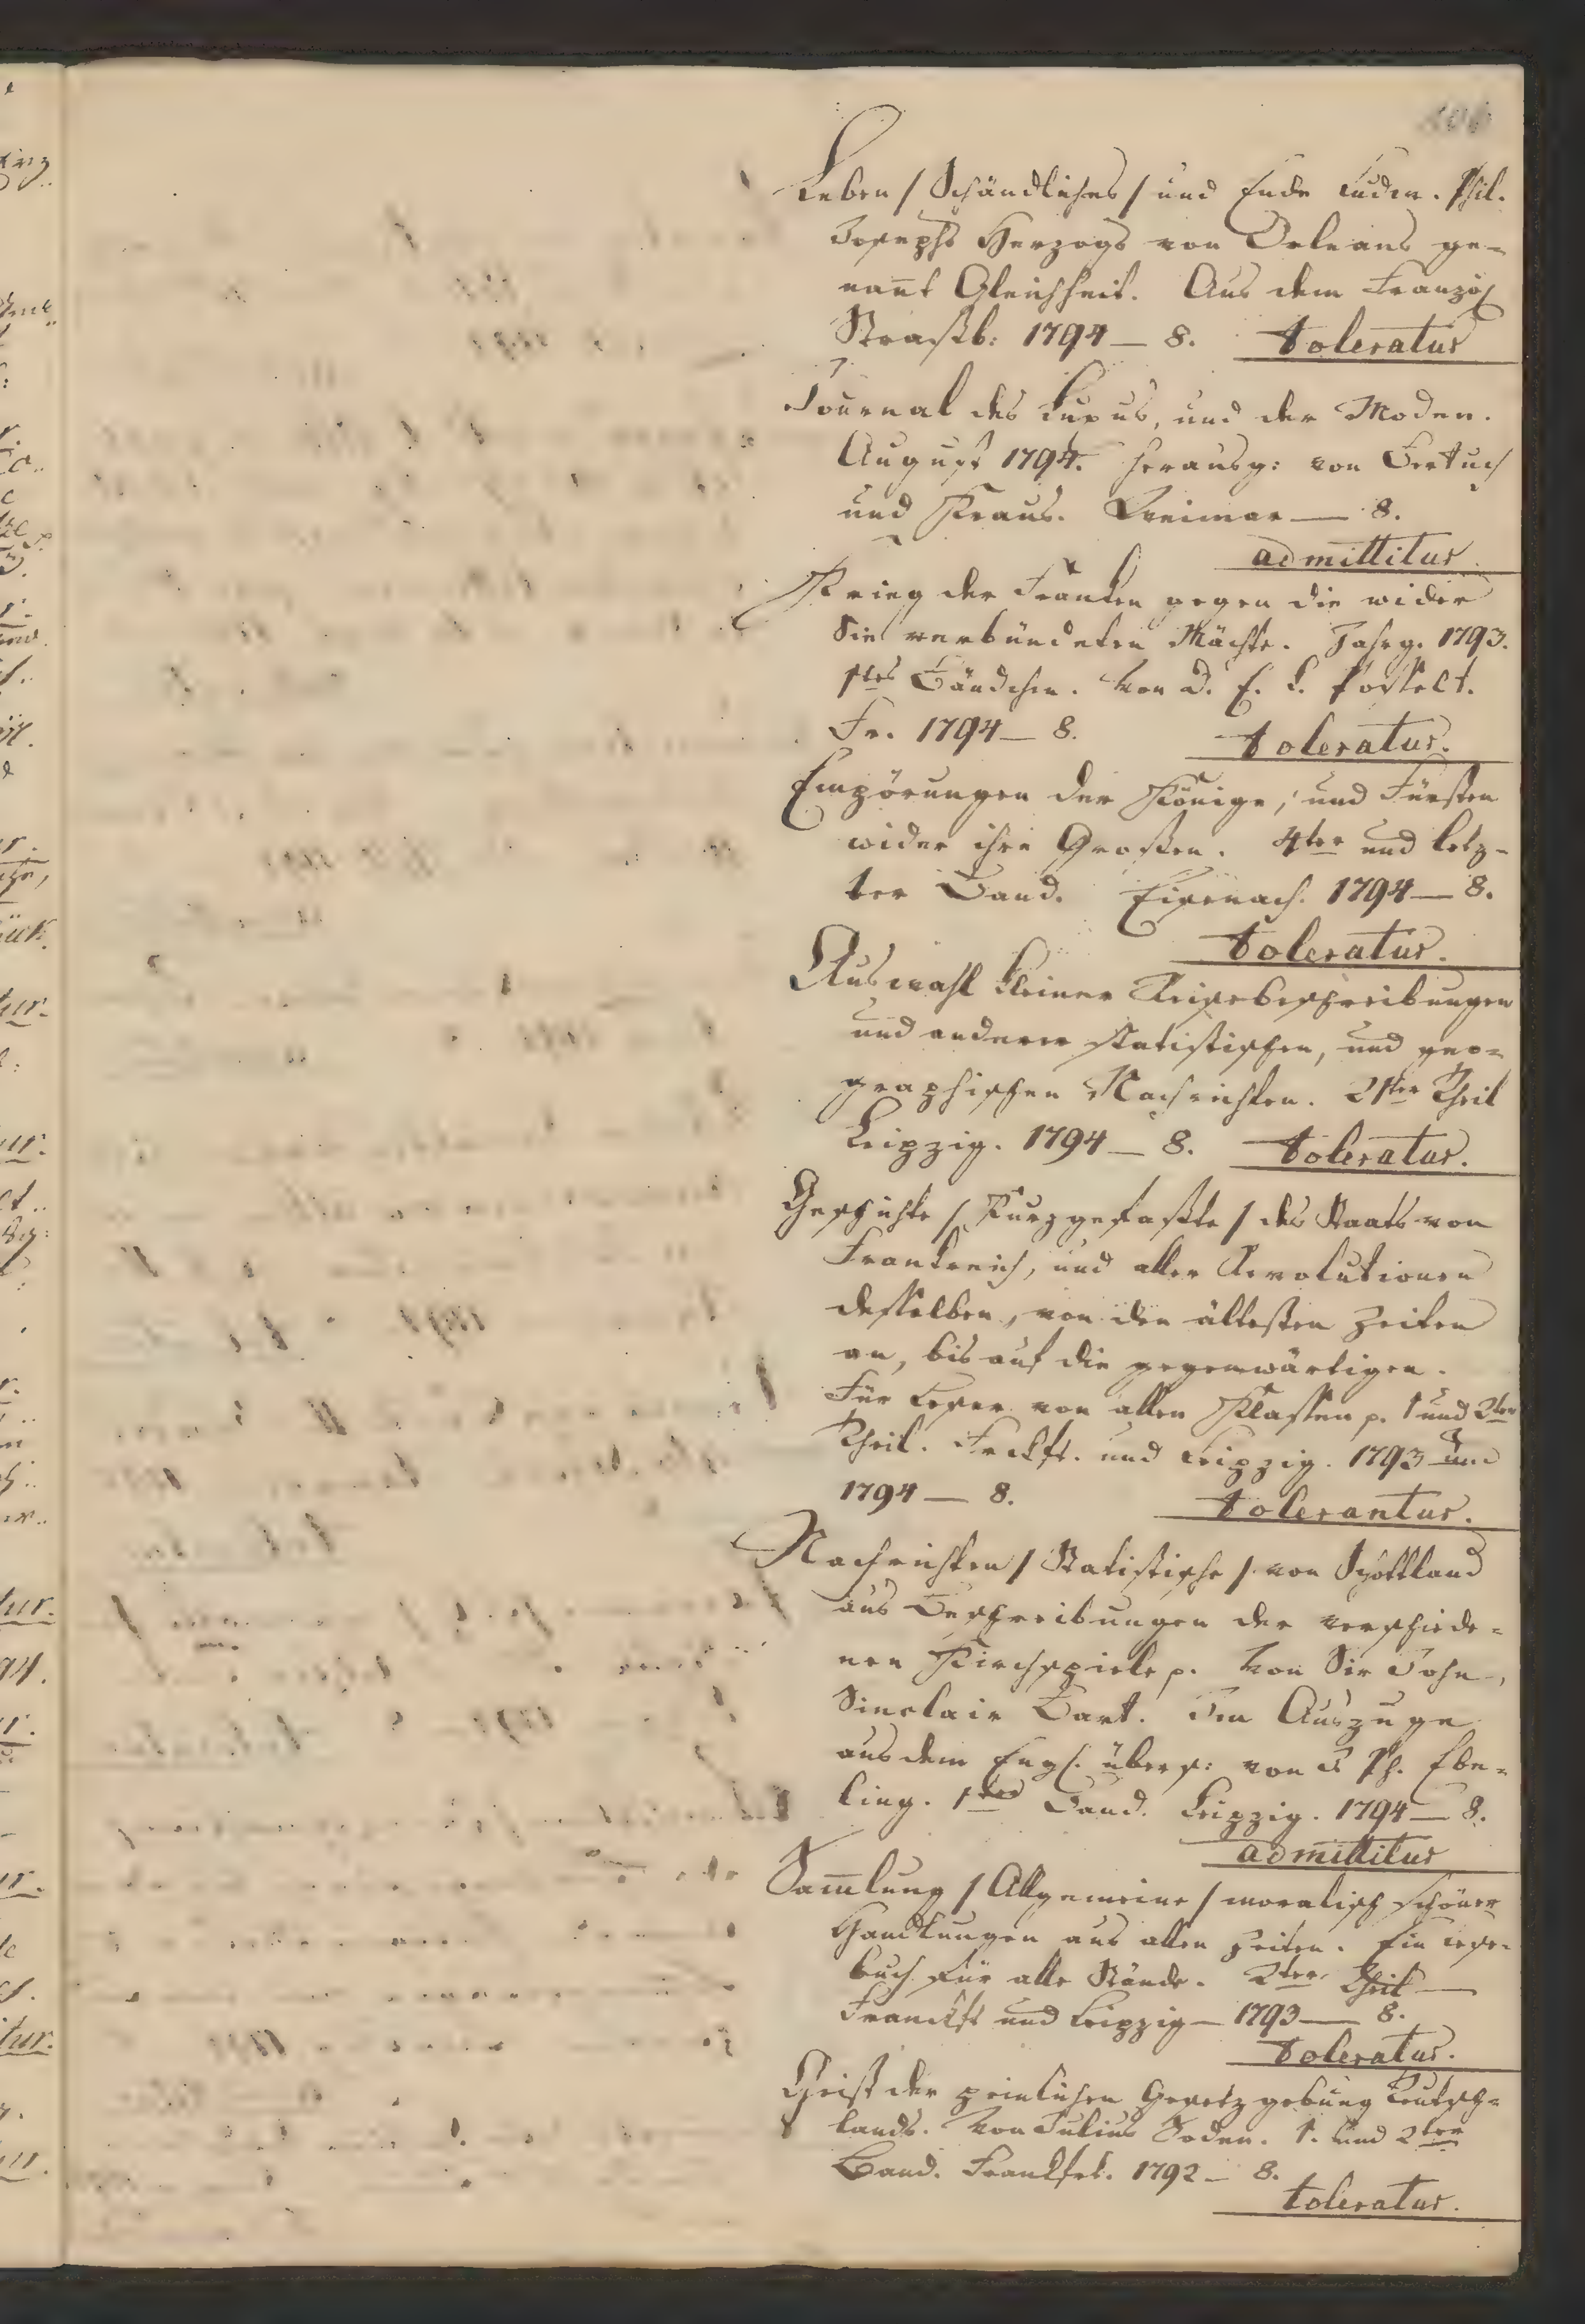 Leben / Schändliches / und Ende Ludw. Phil.
Josephs Herzogs von Orleans ge-
nañt Gleichheit. Aus dem Französ
Straßb: 1794 — 8. toleratur
Journal des Luxus, und der Moden.
August 1794. herausg: von Bertuch
und Kraus. Weimar — 8.
admittitur
Krieg der Franken gegen die wider
Sie verbündeten Mächte. Jahrg. 1793.
1tes Bändchen. Von D. E. L. Posselt.
Fr. 1794 — 8. toleratur.
Empörungen der Könige, und Fürsten
wider ihre Großen. 4ter und letz-
ter Band. Eisenach. 1794 — 8.
toleratur.
Auswahl kleiner Reisebeschreibungen
und anderer statistischen, und geo-
graphischen Nachrichten. 21ter Theil
Leipzig. 1794 — 8. toleratur.
Geschichte / Kurzgefaßte / des Staats von
Frankreich, und aller Revolutionen
desselben, von den ältesten Zeiten
an, bis auf die gegenwärtigen.
Für Leser von allen Klassen p. 1 und 2ter
Theil. Frckft. und Leipzig. 1793 und
1794 — 8. tolerantur.
Nachrichten / Statistische / von Schottland
aus Beschreibungen der verschiede-
nen Kirchspiele p. Von Sir John,
Sinclair Bart. Im Auszuge
aus dem Engl. übers: von D Ph. Ebe-
ling. 1ter Band. Leipzig. 1794 — 8.
admittitur
Sam̄lung / Allgemeine / moralisch schöner
Handlungen aus allen Zeiten. Ein Lese-
buch für alle Stände. 2ter Theil —
Franckft und Leipzig — 1793 — 8.
toleratur.
Geist der peinlichen Gesetzgebung Teutsch-
lands. Von Julius Soden. 1. und 2ter
Band. Frankfrt. 1792 — 8.
toleratur.